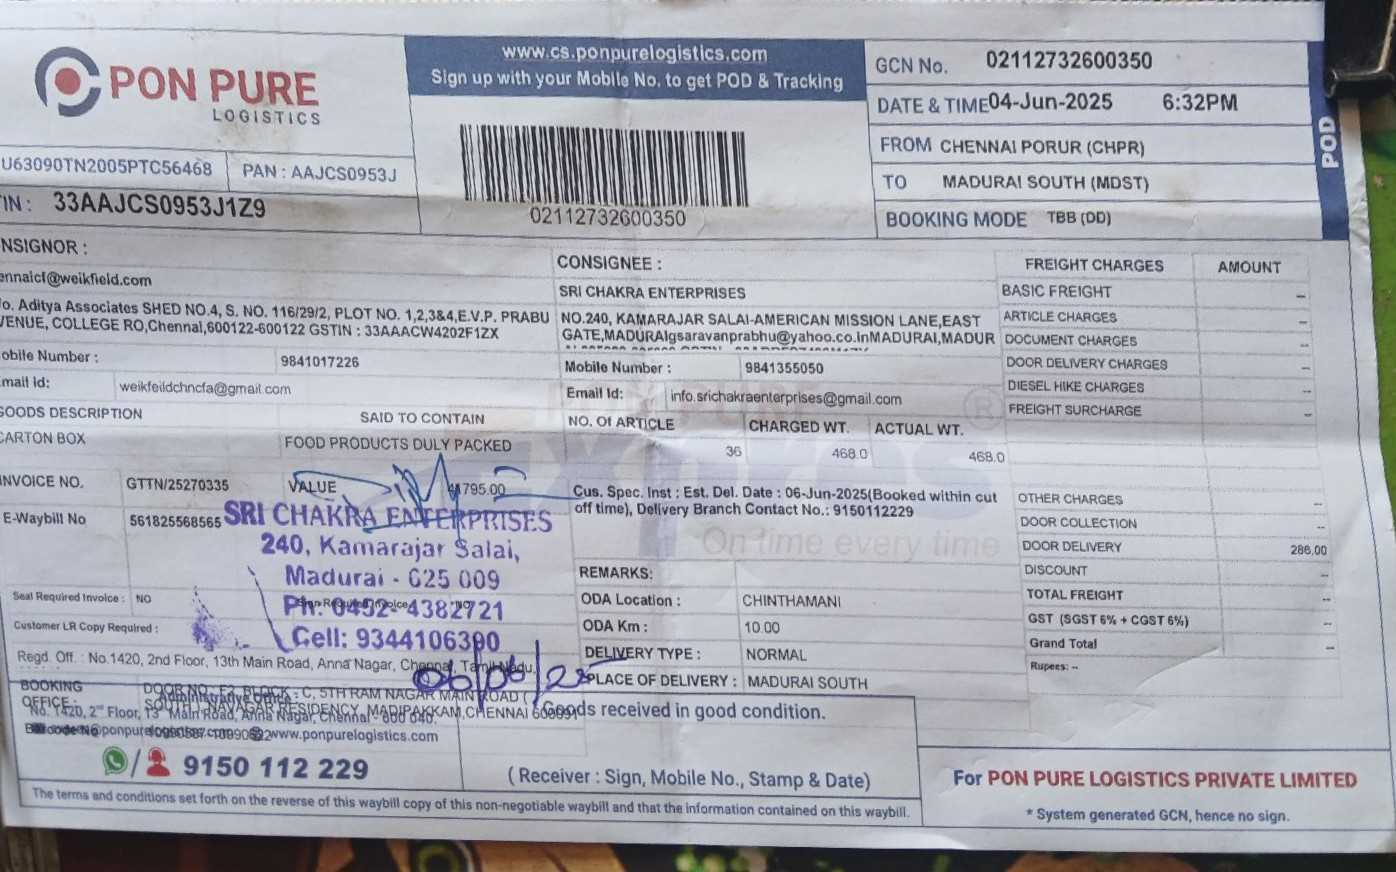 PON PURE
LOGISTICS
www.cs.ponpurelogistics.com
Sign up with your Mobile No. to get POD & Tracking
02112732600350
GCN No. 02112732600350
DATE & TIME 04-Jun-2025 6:32PM
FROM CHENNAI PORUR (CHPR)
TO MADURAI SOUTH (MDST)
BOOKING MODE TBB (DD)
POD
U63090TN2005PTC56468 PAN : AAJCS0953J
IN : 33AAJCS0953J1Z9
NSIGNOR :
ennaicf@weikfield.com
o. Aditya Associates SHED NO.4, S. NO. 116/29/2, PLOT NO. 1,2,3&4,E.V.P. PRABU
VENUE, COLLEGE RO,Chennai,600122-600122 GSTIN : 33AAACW4202F1ZX
obile Number : 9841017226
mail Id: weikfeildchncfa@gmail.com
CONSIGNEE :
SRI CHAKRA ENTERPRISES
NO.240, KAMARAJAR SALAI-AMERICAN MISSION LANE,EAST
GATE,MADURAIgsaravanprabhu@yahoo.co.inMADURAI,MADUR
Mobile Number : 9841355050
Email Id: info.srichakraenterprises@gmail.com
GOODS DESCRIPTION SAID TO CONTAIN NO. Of ARTICLE CHARGED WT. ACTUAL WT.
CARTON BOX FOOD PRODUCTS DULY PACKED 36 468.0 468.0
INVOICE NO. GTTN/25270335 VALUE 795.00
E-Waybill No 561825568565
SRI CHAKRA ENTERPRISES
240, Kamarajar Salai,
Madurai - 625 009
Ph: 0452-4382721
Cell: 9344106390
06/06/25
Seal Required Invoice : NO
Customer LR Copy Required :
Cus. Spec. Inst : Est. Del. Date : 06-Jun-2025(Booked within cut
off time), Delivery Branch Contact No.: 9150112229
On time every time
REMARKS:
ODA Location : CHINTHAMANI
ODA Km : 10.00
DELIVERY TYPE : NORMAL
PLACE OF DELIVERY : MADURAI SOUTH
FREIGHT CHARGES AMOUNT
BASIC FREIGHT --
ARTICLE CHARGES --
DOCUMENT CHARGES --
DOOR DELIVERY CHARGES --
DIESEL HIKE CHARGES --
FREIGHT SURCHARGE --
OTHER CHARGES --
DOOR COLLECTION --
DOOR DELIVERY 286.00
DISCOUNT --
TOTAL FREIGHT --
GST (SGST 6% + CGST 6%) --
Grand Total --
Rupees: --
Regd. Off. : No.1420, 2nd Floor, 13th Main Road, Anna Nagar, Chennai, Tamil Nadu.
BOOKING
OFFICE :
DOOR NO : F2, BLOCK : C, 5TH RAM NAGAR MAIN ROAD (
SOUTH ), NAVAGAR RESIDENCY, MADIPAKKAM,CHENNAI 600091
Administrative Office :
No. 1420, 2nd Floor, 13th Main Road, Anna Nagar, Chennai - 600 040.
www.ponpurelogistics.com
9150 112 229
Goods received in good condition.
(Receiver : Sign, Mobile No., Stamp & Date)
The terms and conditions set forth on the reverse of this waybill copy of this non-negotiable waybill and that the information contained on this waybill.
For PON PURE LOGISTICS PRIVATE LIMITED
* System generated GCN, hence no sign.